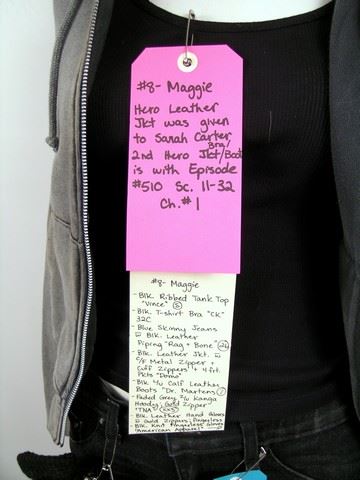 #8- Maggie
Hero Leather
Jkt was given
to Sarah Carter
Bra/
2nd Hero Jkt/Boot
is with Episode
#510 Sc. 11-32
Ch.#1
#8- Maggie
- Blk. Ribbed Tank Top
"Vince" (S)
- Blk. T-shirt Bra "CK"
32C
- Blue Skinny Jeans
Blk. Leather
Piping "Rag + Bone" (26)
- Blk. Leather Jkt.
C/F Metal Zipper +
Cuff Zippers + 4 frt.
Pkts "Domo"
- Blk Calf Leather
Boots "Dr. Martens"
- Faded Grey Kanga
Hoody, Gold Zipper
"TNA" (XXS)
- Blk. Leather Hand Gloves
Gold Zippers, Fingerless
- Blk. Knit Fingerless Gloves
"American Apparel"